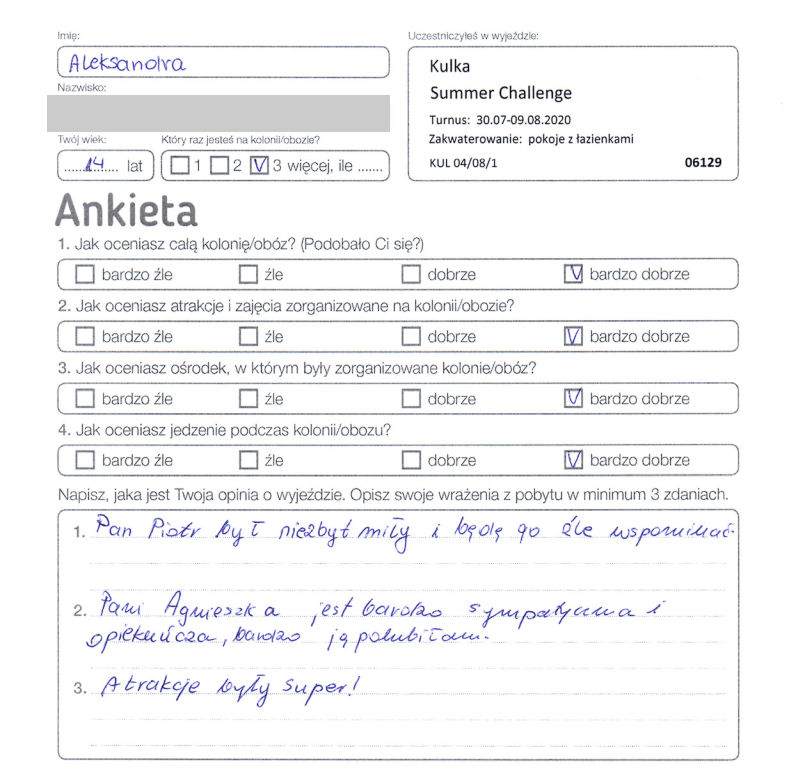 Imię:
Aleksandra
Nazwisko:
Twój wiek:
Który raz jesteś na kolonii/obozie?
......14.... lat
1 2 V 3 więcej, ile .......
Uczestniczyłeś w wyjeździe:
Kulka
Summer Challenge
Turnus: 30.07-09.08.2020
Zakwaterowanie: pokoje z łazienkami
KUL 04/08/1 06129
Ankieta
1. Jak oceniasz całą kolonię/obóz? (Podobało Ci się?)
bardzo źle źle dobrze V bardzo dobrze
2. Jak oceniasz atrakcje i zajęcia zorganizowane na kolonii/obozie?
bardzo źle źle dobrze V bardzo dobrze
3. Jak oceniasz ośrodek, w którym były zorganizowane kolonie/obóz?
bardzo źle źle dobrze V bardzo dobrze
4. Jak oceniasz jedzenie podczas kolonii/obozu?
bardzo źle źle dobrze V bardzo dobrze
Napisz, jaka jest Twoja opinia o wyjeździe. Opisz swoje wrażenia z pobytu w minimum 3 zdaniach.
1. Pan Piotr był niezbyt miły i będę go źle wspominać.
2. Pani Agnieszka jest bardzo sympatyczna i
opiekuńcza, bardzo ją polubiłam.
3. Atrakcje były super!